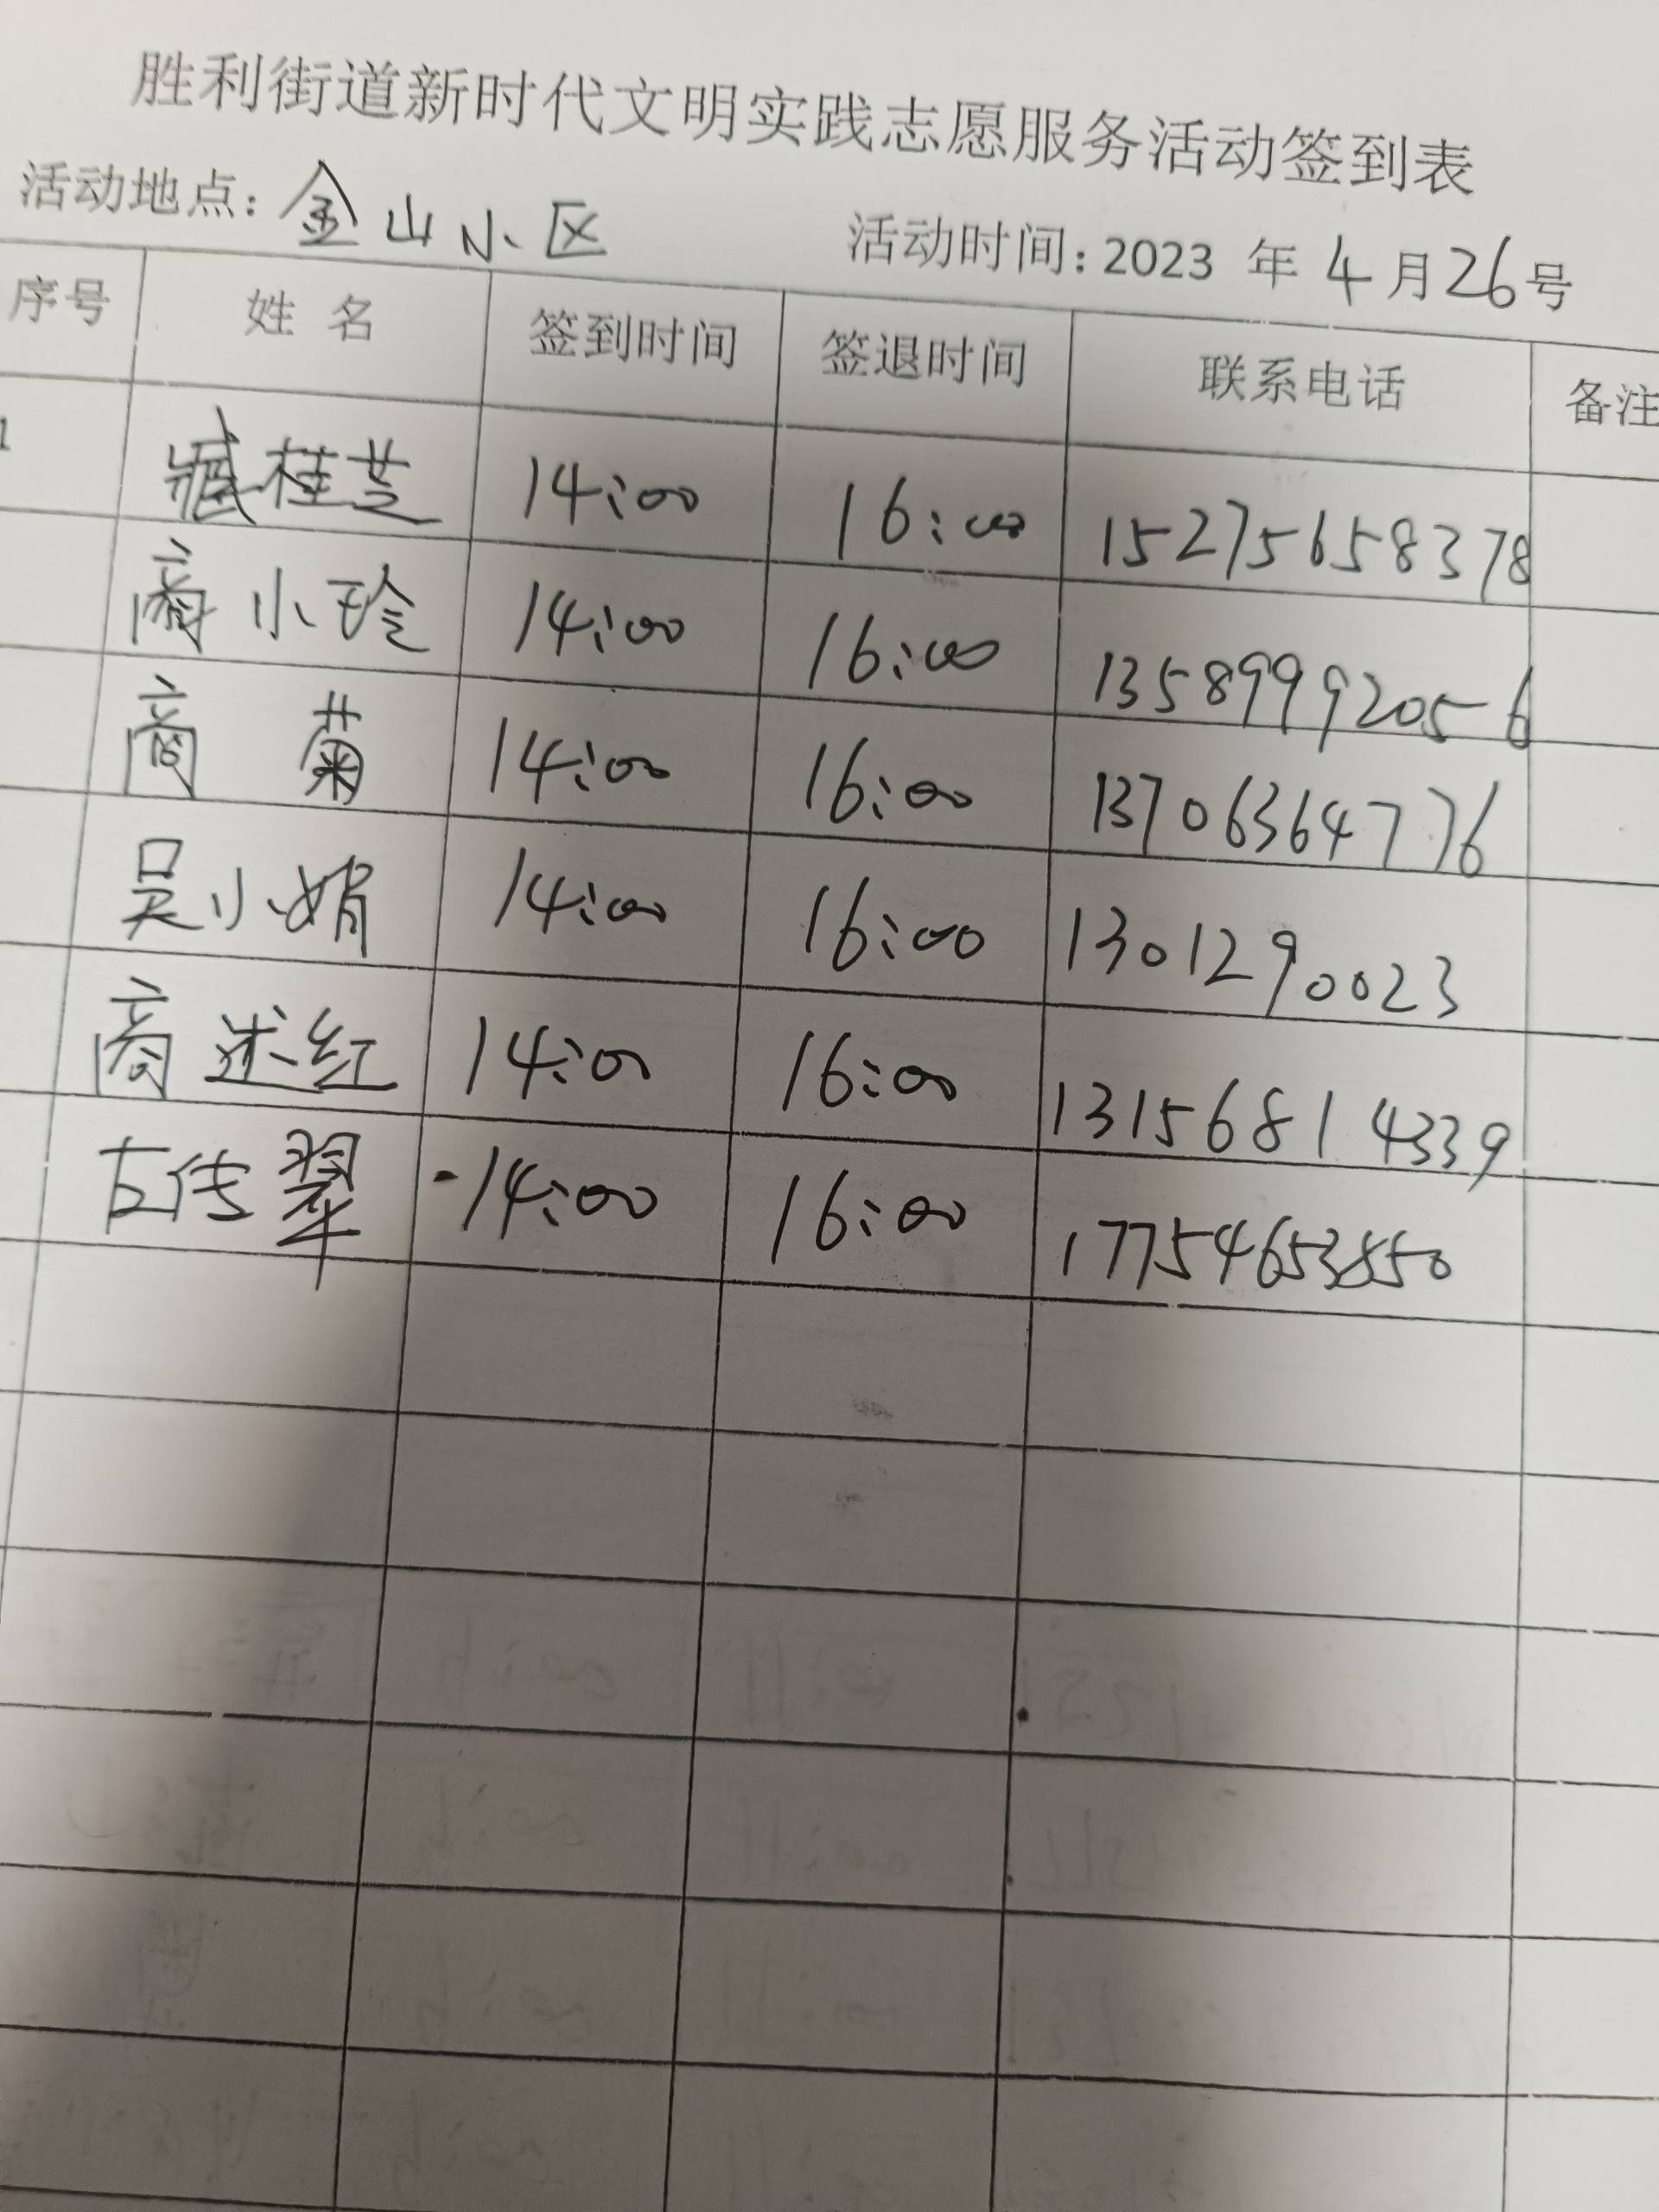 胜利街道新时代文明实践志愿服务活动签到表
活动地点：金山小区 活动时间：2023 年 4 月 26 号
序号 姓 名 签到时间 签退时间 联系电话 备注
1 臧桂芝 14:00 16:00 15275658378
商小玲 14:00 16:00 13589992056
商 菊 14:00 16:00 13706364776
吴小娟 14:00 16:00 1301290023
商述红 14:00 16:00 13156814339
传翠 14:00 16:00 17754653850